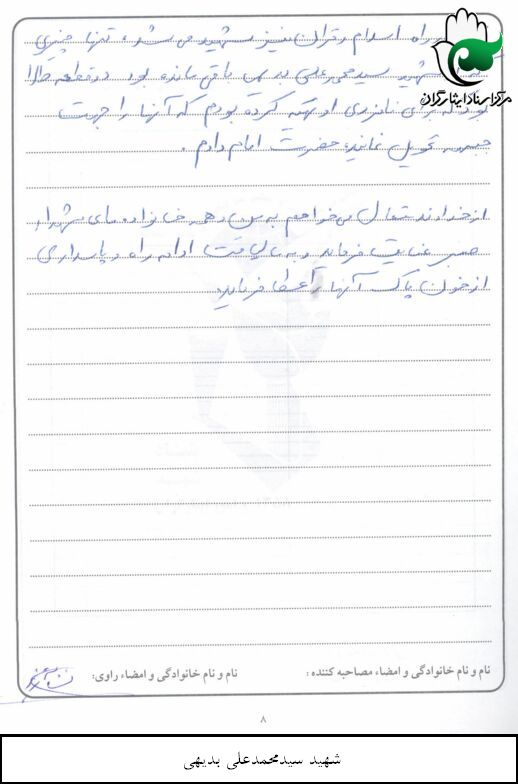 مرکز اسناد ایثارگران
راه اسلام و قرآن نیز شهید می شد، تنها چیزی
شهید سیدمحمدعلی بر من باقی مانده بود دو قطعه طلا
بود که برای نامزدی او تهیه کرده بودم که آنها را جهت
جبهه تحویل نماینده حضرت امام دادم.
از خداوند متعال می خواهم به من و همه خانواده های شهداء
صبر عنایت فرماید و به ما لیاقت ادامه راه و پاسداری
از خون پاک آنها را عطا فرماید
نام و نام خانوادگی و امضاء مصاحبه کننده :
نام و نام خانوادگی و امضاء راوی:
۸
شهید سیدمحمدعلی بدیهی